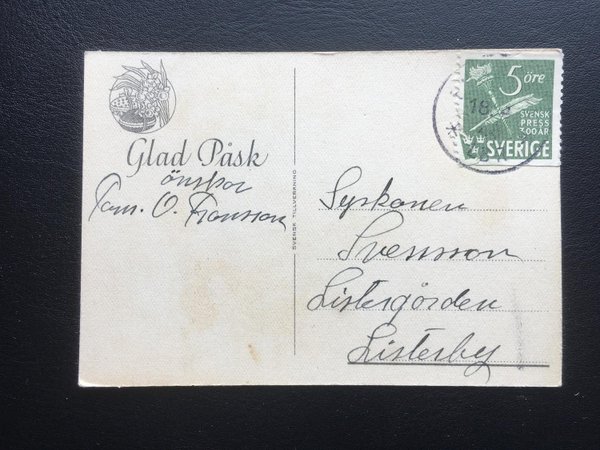 Glad Påsk
önskar
Fam. O. Fransson
SVENSK TILLVERKNING
Syskonen
Svensson
Listergården
Listerby
5 öre
SVENSK
PRESS
300 ÅR
SVERIGE
18